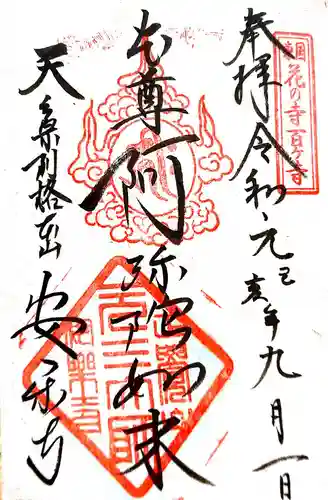 東国花の寺百ヶ寺
奉拝令和元己亥年九月一日
本尊阿弥陀如来
別格本山安楽寺